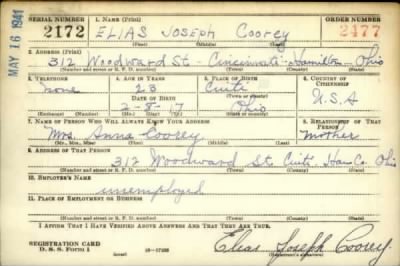 SERIAL NUMBER 1. NAME (Print) ORDER NUMBER
2172 ELIAS JOSEPH Coorey 2477
(First) (Middle) (Last)
MAY 16 1941
2. ADDRESS (Print)
312 Woodward St - Cincinnati - Hamilton - Ohio
(Number and street or R. F. D. number) (Town) (County) (State)
3. TELEPHONE 4. AGE IN YEARS 5. PLACE OF BIRTH 6. COUNTRY OF CITIZENSHIP
None 23 Cinti U.S.A
DATE OF BIRTH (Town or county)
2-8-17 Ohio
(Exchange) (Number) (Mo.) (Day) (Yr.) (State or country)
7. NAME OF PERSON WHO WILL ALWAYS KNOW YOUR ADDRESS 8. RELATIONSHIP OF THAT PERSON
Mrs. Anna Coorey Mother
(Mr., Mrs., Miss) (First) (Middle) (Last)
9. ADDRESS OF THAT PERSON
312 Woodward St Cinti. Ham Co Ohio
(Number and street or R. F. D. number) (Town) (County) (State)
10. EMPLOYER'S NAME
unemployed
11. PLACE OF EMPLOYMENT OR BUSINESS
(Number and street or R. F. D. number) (Town) (County) (State)
I AFFIRM THAT I HAVE VERIFIED ABOVE ANSWERS AND THAT THEY ARE TRUE.
REGISTRATION CARD
D. S. S. Form 1 Elias Joseph Coorey
(Registrant's signature)